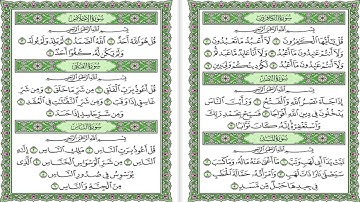 سُورَةُ الكَافِرُونَ
بِسْمِ اللَّهِ الرَّحْمَٰنِ الرَّحِيمِ
قُلْ يَٰأَيُّهَا الْكَٰفِرُونَ ١ لَا أَعْبُدُ مَا تَعْبُدُونَ ٢
وَلَا أَنتُمْ عَٰبِدُونَ مَا أَعْبُدُ ٣ وَلَا أَنَا عَابِدٌ مَّا عَبَدتُّمْ ٤
وَلَا أَنتُمْ عَٰبِدُونَ مَا أَعْبُدُ ٥ لَكُمْ دِينُكُمْ وَلِيَ دِينِ ٦
سُورَةُ النَّصْرِ
بِسْمِ اللَّهِ الرَّحْمَٰنِ الرَّحِيمِ
إِذَا جَاءَ نَصْرُ اللَّهِ وَالْفَتْحُ ١ وَرَأَيْتَ النَّاسَ
يَدْخُلُونَ فِي دِينِ اللَّهِ أَفْوَاجًا ٢ فَسَبِّحْ بِحَمْدِ رَبِّكَ
وَاسْتَغْفِرْهُ إِنَّهُ كَانَ تَوَّابًا ٣
سُورَةُ المَسَدِ
بِسْمِ اللَّهِ الرَّحْمَٰنِ الرَّحِيمِ
تَبَّتْ يَدَا أَبِي لَهَبٍ وَتَبَّ ١ مَا أَغْنَىٰ عَنْهُ مَالُهُ وَمَا كَسَبَ ٢
سَيَصْلَىٰ نَارًا ذَاتَ لَهَبٍ ٣ وَامْرَأَتُهُ حَمَّالَةَ الْحَطَبِ ٤
فِي جِيدِهَا حَبْلٌ مِّن مَّسَدٍ ٥
سُورَةُ الإِخْلَاصِ
بِسْمِ اللَّهِ الرَّحْمَٰنِ الرَّحِيمِ
قُلْ هُوَ اللَّهُ أَحَدٌ ١ اللَّهُ الصَّمَدُ ٢ لَمْ يَلِدْ وَلَمْ يُولَدْ ٣
وَلَمْ يَكُن لَّهُ كُفُوًا أَحَدٌ ٤
سُورَةُ الفَلَقِ
بِسْمِ اللَّهِ الرَّحْمَٰنِ الرَّحِيمِ
قُلْ أَعُوذُ بِرَبِّ الْفَلَقِ ١ مِن شَرِّ مَا خَلَقَ ٢ وَمِن شَرِّ
غَاسِقٍ إِذَا وَقَبَ ٣ وَمِن شَرِّ النَّفَّٰثَٰتِ فِي الْعُقَدِ ٤
وَمِن شَرِّ حَاسِدٍ إِذَا حَسَدَ ٥
سُورَةُ النَّاسِ
بِسْمِ اللَّهِ الرَّحْمَٰنِ الرَّحِيمِ
قُلْ أَعُوذُ بِرَبِّ النَّاسِ ١ مَلِكِ النَّاسِ ٢ إِلَٰهِ
النَّاسِ ٣ مِن شَرِّ الْوَسْوَاسِ الْخَنَّاسِ ٤ الَّذِي
يُوَسْوِسُ فِي صُدُورِ النَّاسِ ٥
مِنَ الْجِنَّةِ وَالنَّاسِ ٦